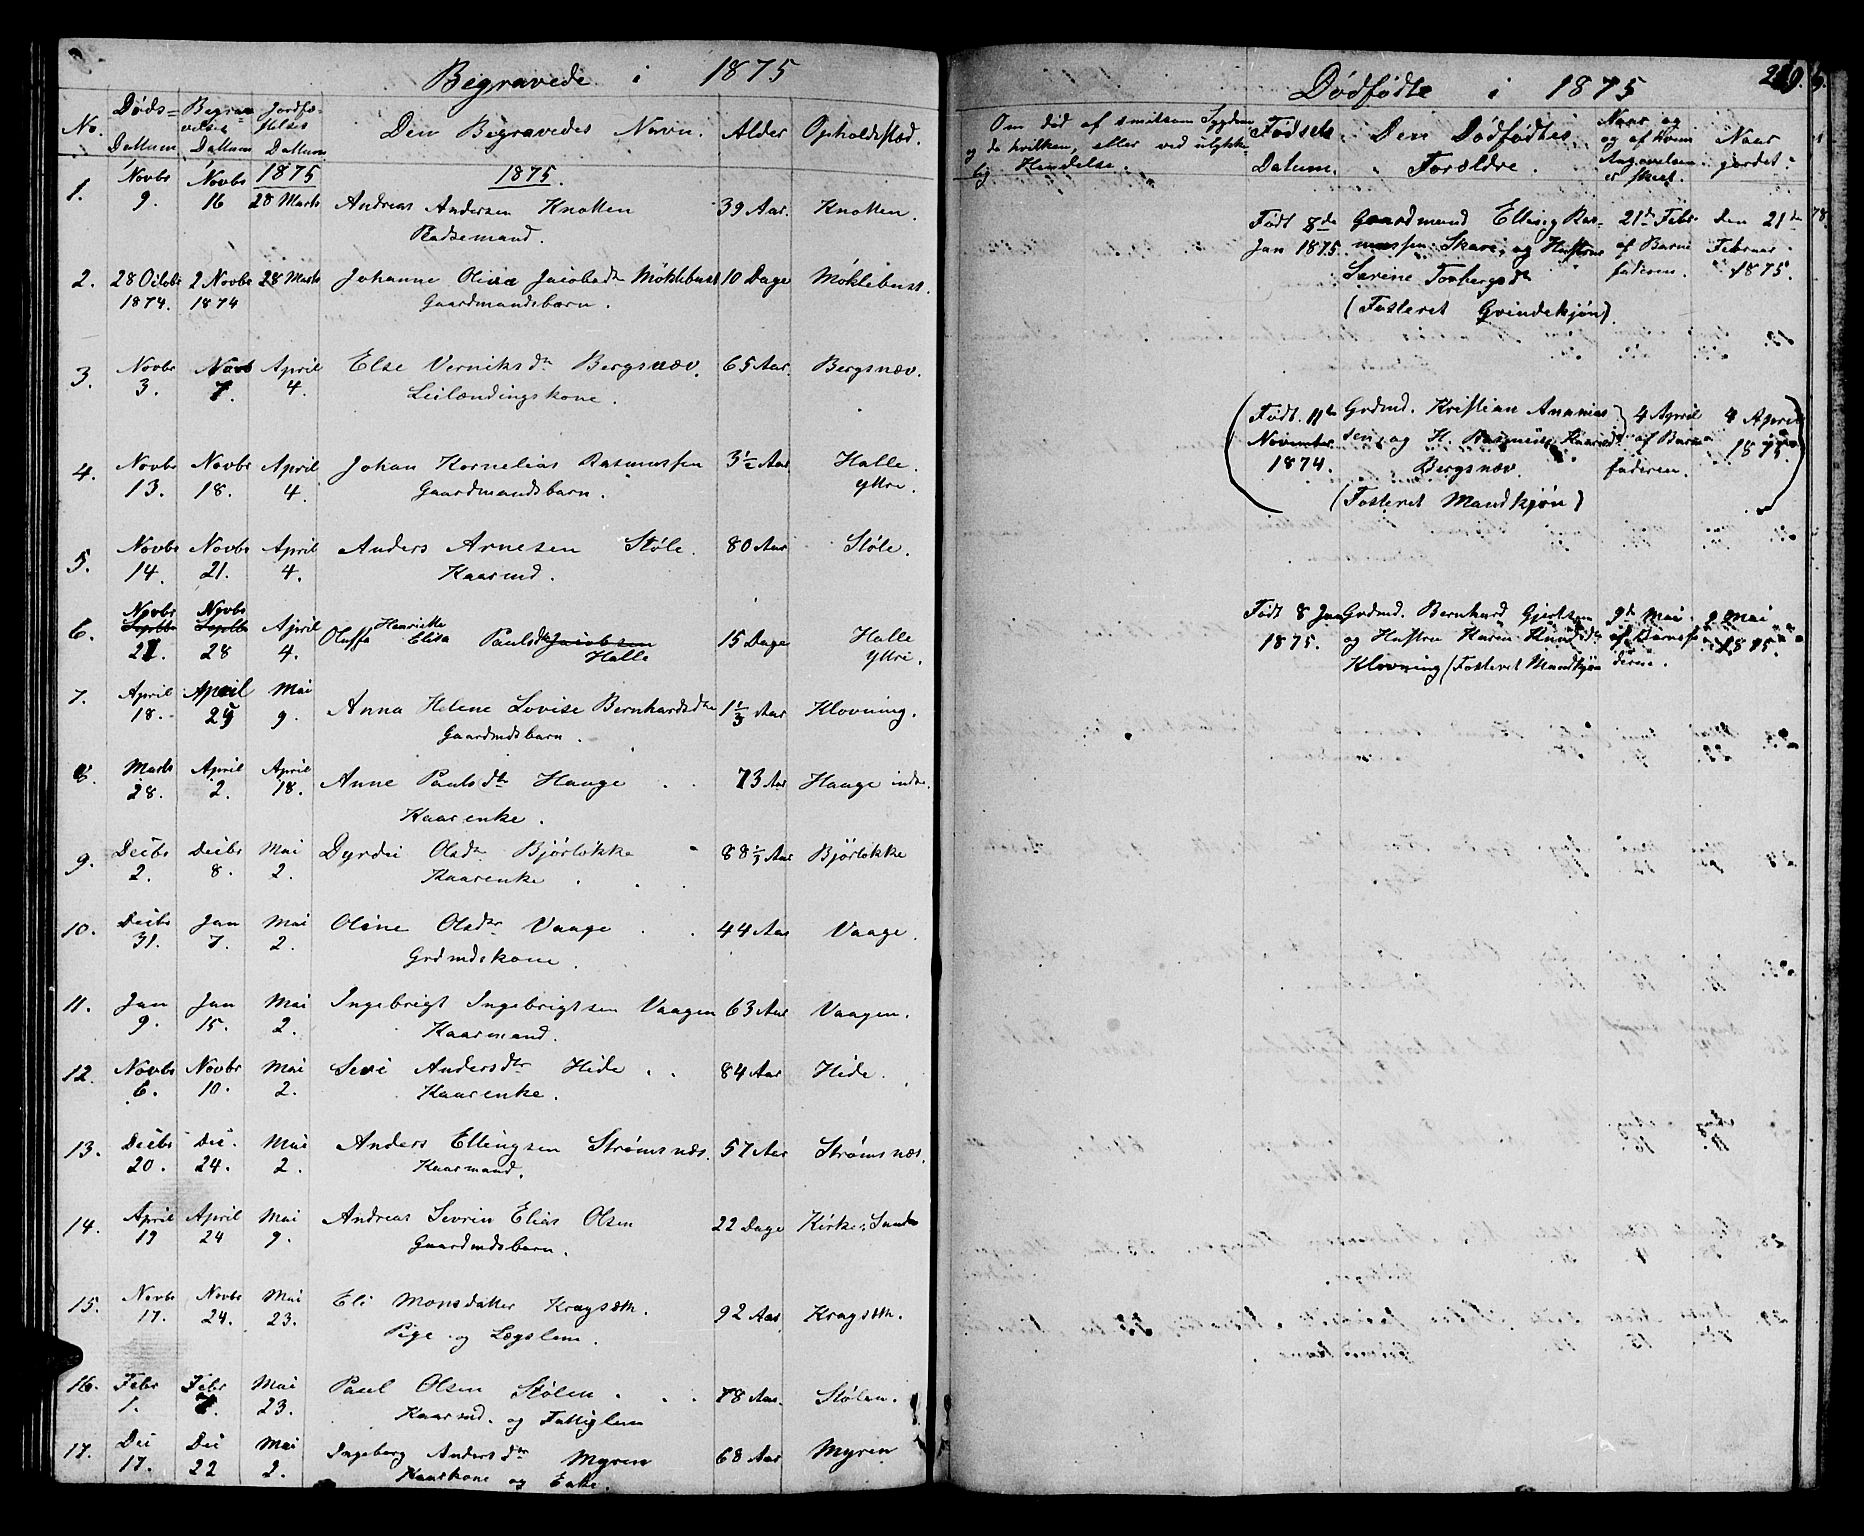 Begravede i 1875
No. Døds= Datum Begravelse Datum Jordfæstelses Datum Den Begravedes Navn. Alder Opholdssted.
1875 1875.
1. Novbr 9. Novbr 16 28 Marts Andreas Andersen Knotten 39 Aar. Knotten.
Pladsemand.
2. 28 Octobr 1874. 2 Novbr 1874 28 Marts Johanne Olivæ Jacobsdtr Møklebust 10 Dage Møklebust.
Gaardmandsbarn.
3. Novbr 3. Novb 7. April 4. Else Verniksdtr Bergsnæv. 65 Aar. Bergsnæv.
Leilændingskone.
4. Novbr 13. Novbr 18. April 4. Johan Kornelias Rasmussen 3½ Aar Halle. ytre.
Gaardmandsbarn.
5. Novbr 14. Novbr 21. April 4. Anders Arnesen Støle. 80 Aar Støle.
Kaarmd.
6. Novbr Septbr 21. Novbr Septbr 28 April 4. Oluffa Henriette Elisa Paulsdtr Jacobsen 15 Dage Halle ytre.
Halle
7. April 18. April 25 Mai 9. Anna Helene Lovise Bernhardsdtr 1⅓ Aar Klovning.
Gaardmdsbarn.
8. Marts 28. April 2. April 18. Anne Paulsdtr Hauge 73 Aar Hauge indre.
Kaarenke.
9. Decbr 2. Decbr 8. Mai 2. Dyrdei Olsdtr Bjørløkke 88½ Aar Bjørløkke
Kaarenke.
10. Decbr 31. Jan 7. Mai 2. Oline Olsdtr Vaage 44 Aar Vaage.
Grdmdskone.
11. Jan 9. Jan 15. Mai 2. Ingebrigt Ingebrigtsen Vaagen 63 Aar Vaagen.
Kaarmand.
12. Novbr 6. Novbr 10. Mai 2. Sevi Andersdtr Hide 84 Aar Hide.
Kaarenke.
13. Decbr 20. Dec. 24. Mai 2. Anders Ellingsen Strømsnæs. 57 Aar Strømsnæs.
Kaarmand.
14. April 19 April 24 Mai 9. Andreas Sevrin Elias Olsen 22 Dage Kirke, Sande
Gaardmdsbarn.
15. Novbr 17. Novbr 24. Mai 23. Eli Monsdatter Kragsæth. 92 Aar Kragsæth.
Pige og Lægslem.
16. Febr 1. Febr 7. Mai 23. Paul Olsen Stølen. 78 Aar. Stølen.
Kaarmd. og Fattiglem
17. Dec 17. Dec 22 Mai 2. Ingeborg Andersdtr Myren 68 Aar Myren
Kaarkone og Enke.
Dødfødte i 1875
Om død af smitsom Sygdom
og da hvilken, eller ved ulykke-
lig Hændelse.
Fødsels Datum. Den Dødfødtes Forældre. Naar og og af hvem Angivelsen er skeet. Naar jordet.
Født 8de Gaardmand Elling Ras- 21de Febr. Den 21de
Jan 1875 mussen Skare, og Hustru af Barne Februar
Serine Torbergsdtr faderen. 1875.
(Fosteret Qvindekjøn)
(Født 11te Grdmd. Kristian Ananias 4 April 4 April
November sen, og H. Rasmine Knarsdtr af Barne 1875.)
1874. Bergsnæv. faderen.
(Fosteret Mandkjøn)
Født 8 Jan Grdmd. Bernhard Gjertsen 9de Mai 9 Mai
1875. og Hustru Karen Knudsdtr af Barnefa 1875.
Klovning (Fosteret Mandkjøn deren.